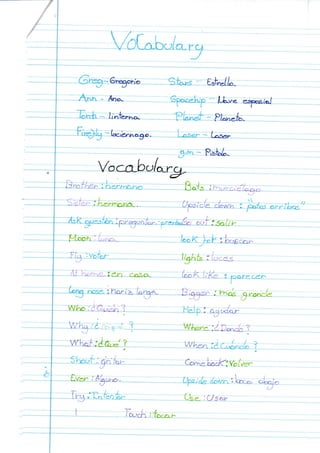 Vocabulary
Greg - Gregorio Stars - Estrella
Ann - Ana Spaceship - Nave espacial
Torch - linterna Planet - Planeta
Firefly - luciernaga Laser - Laser
gun - Pistola
Vocabulary
Brother : hermano Bats : murciélago
Sister : hermana Upside down : "patas arribas"
Ask question : preguntar out : Salir
Moon : luna look for : buscar
Fly : volar lights : luces
At home : en casa look like : parecer
long nose : nariz larga Bigger : más grande
Who : ¿Quién? Help : ayudar
Why : ? Where : ¿Donde?
What : ¿Que? When : ¿Cuándo?
Shout : gritar Come back : Volver
Ever : Upside down : boca abajo
Try : Intentar Use : Usar
Touch : tocar